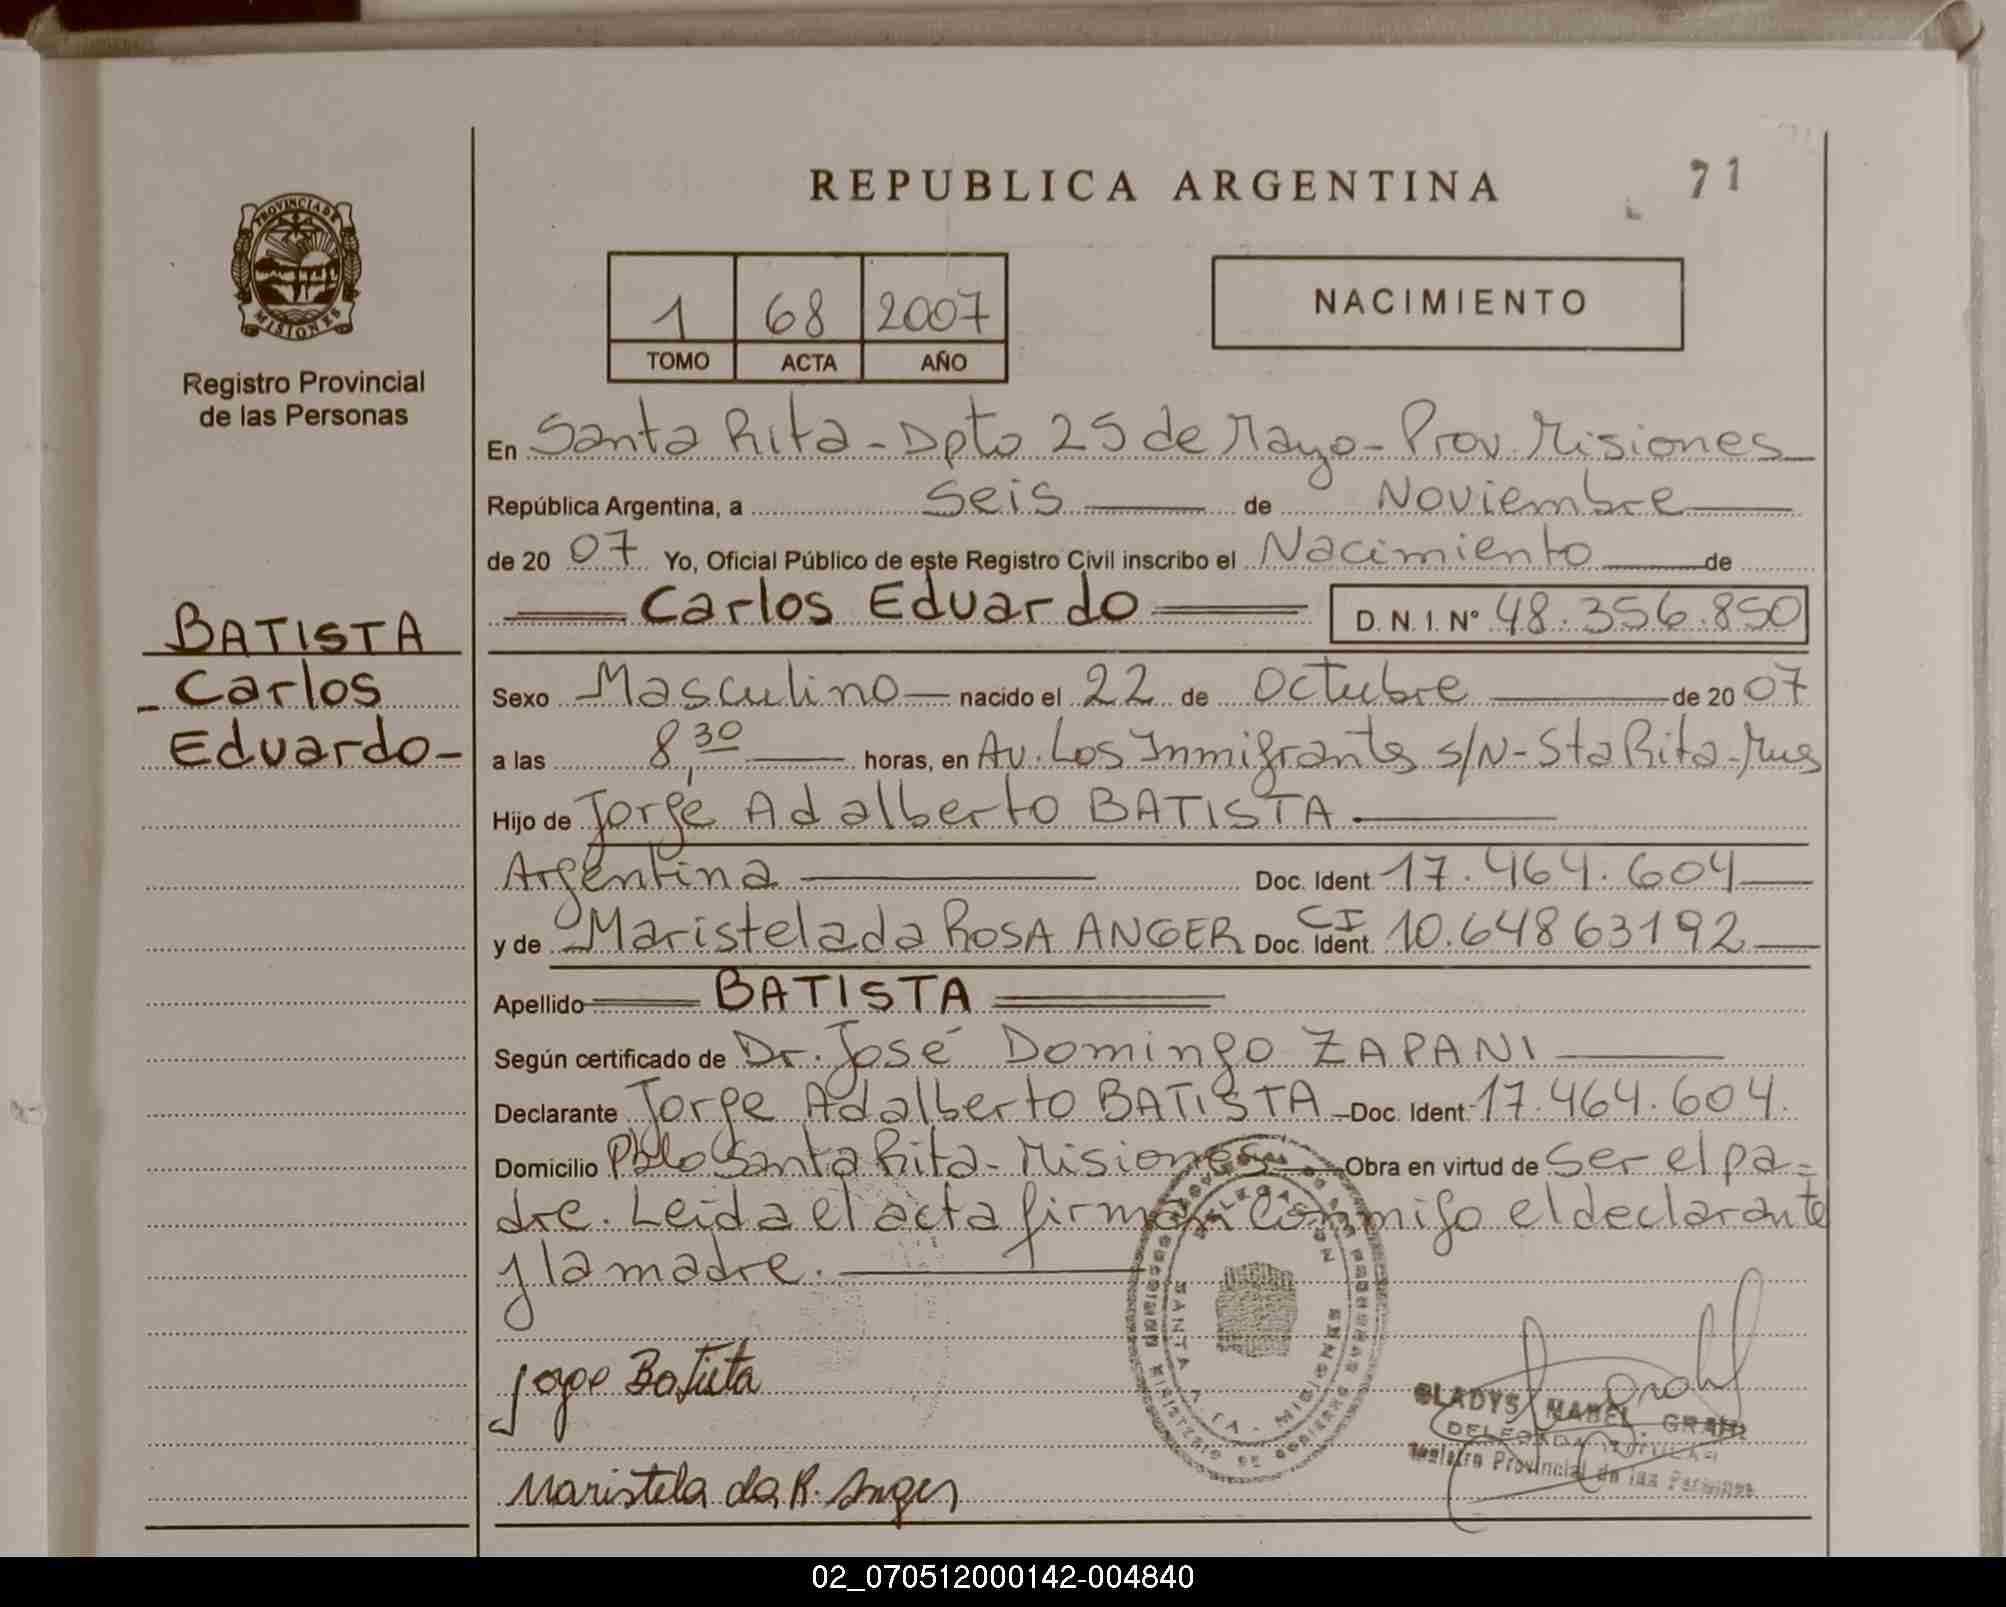 REPUBLICA ARGENTINA
71
PROVINCIA DE
MISIONES
Registro Provincial
de las Personas
1 68 2007
TOMO ACTA AÑO
NACIMIENTO
En Santa Rita - Dpto 25 de Mayo - Prov. Misiones
República Argentina, a Seis de Noviembre
de 2007 Yo, Oficial Público de este Registro Civil inscribo el Nacimiento de
Carlos Eduardo D. N. I. Nº 48.356.850
BATISTA
Carlos
Eduardo
Sexo Masculino nacido el 22 de Octubre de 2007
a las 8,30 horas, en Av. Los Inmigrantes s/N - Sta Rita - Mnes
Hijo de Jorge Adalberto BATISTA
Argentina Doc. Ident 17.464.604
y de Maristela da ROSA ANGER Doc. Ident. CI 10.64863192
Apellido BATISTA
Según certificado de Dr. José Domingo ZAPANI
Declarante Jorge Adalberto BATISTA Doc. Ident. 17.464.604.
Domicilio Pblo Santa Rita - Misiones Obra en virtud de Ser el pa=
dre. Leida el acta firman conmigo el declarante
y la madre.
Jorge Batista
Maristela da R. Anger
DELEGACION
SANTA RITA - MISIONES
MINISTERIO DE GOBIERNO
GLADYS MABEL GRAHL
DELEGADA TITULAR
Registro Provincial de las Personas
02_070512000142-004840